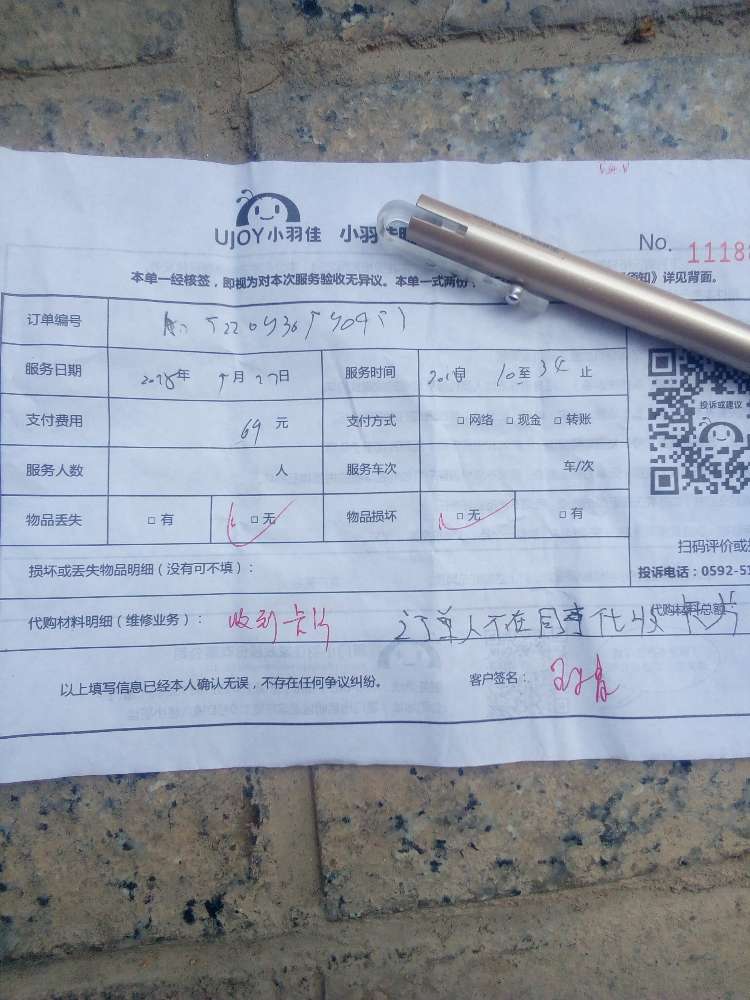 UJOY小羽佳 小羽
No. 1118
本单一经核签，即视为对本次服务验收无异议。本单一式两份 须知》详见背面。
订单编号
服务日期 2018年 月27日 服务时间 10至 止
投诉或建议
支付费用 69元 支付方式 □网络 □现金 □转账
服务人数 人 服务车次 车/次
物品丢失 □有 □无 物品损坏 □无 □有
扫码评价或
损坏或丢失物品明细（没有可不填）： 投诉电话：0592-51
代购材料明细（维修业务）： 收到卡片 订单人不在同事代收卡片 代购材料总额
以上填写信息已经本人确认无误，不存在任何争议纠纷。 客户签名：